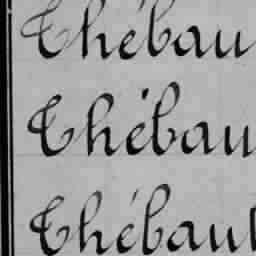 Thébau
Thébau
Thébaul